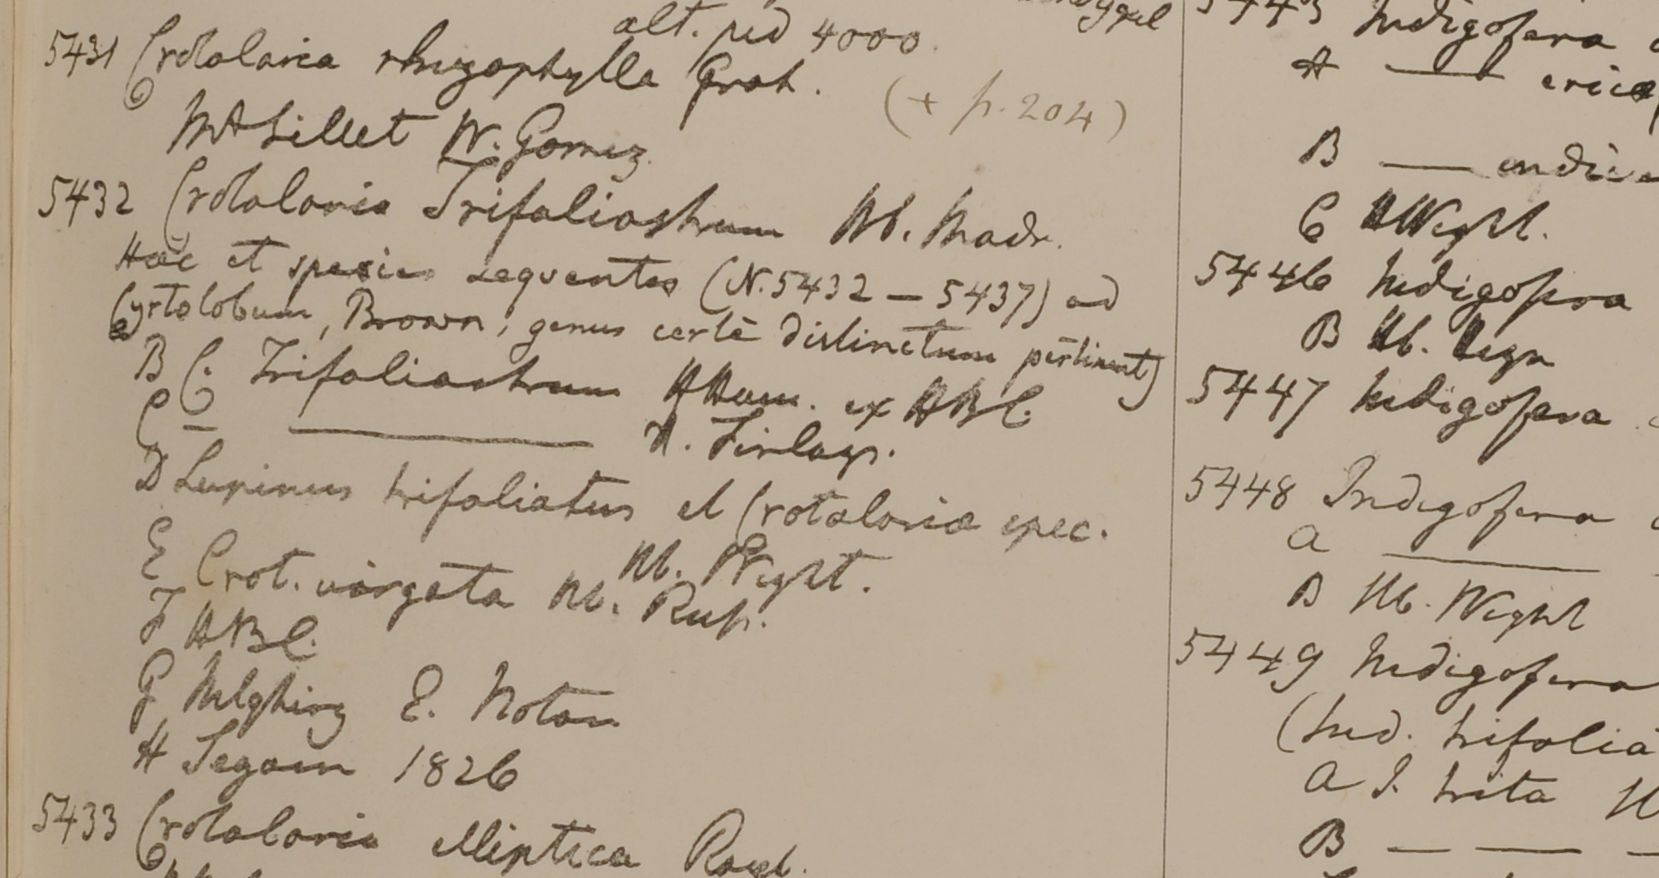 alt. ped 4000
5431 Crotalaria rhizophylla Grah. (+ p. 204)
Mt Sillet W. Gomez
5432 Crotalaria Trifoliastrum Hb. Madr.
Haec et species sequentes (N. 5432 — 5437) ad
Cyrtolobum, Brown, genus certè distinctum pertinent)
B C. Trifoliastrum HHam. ex HBC
C — ——— H. Finlays.
D Lupinus trifoliatus et Crotalariae spec.
Hb. Wight.
E Crot. virgata Hb. Rup.
F HBC.
G E. Noton
H Segain 1826
5433 Crotalaria elliptica Roxb.
Indigofera
A —
B —
C HWight.
5446 Indigofera
B Hb.
5447 Indigofera
5448 Indigofera
a ———
B Hb. Wight
5449 Indigofera
(Ind. trifolia
a I. trita H
B — — —